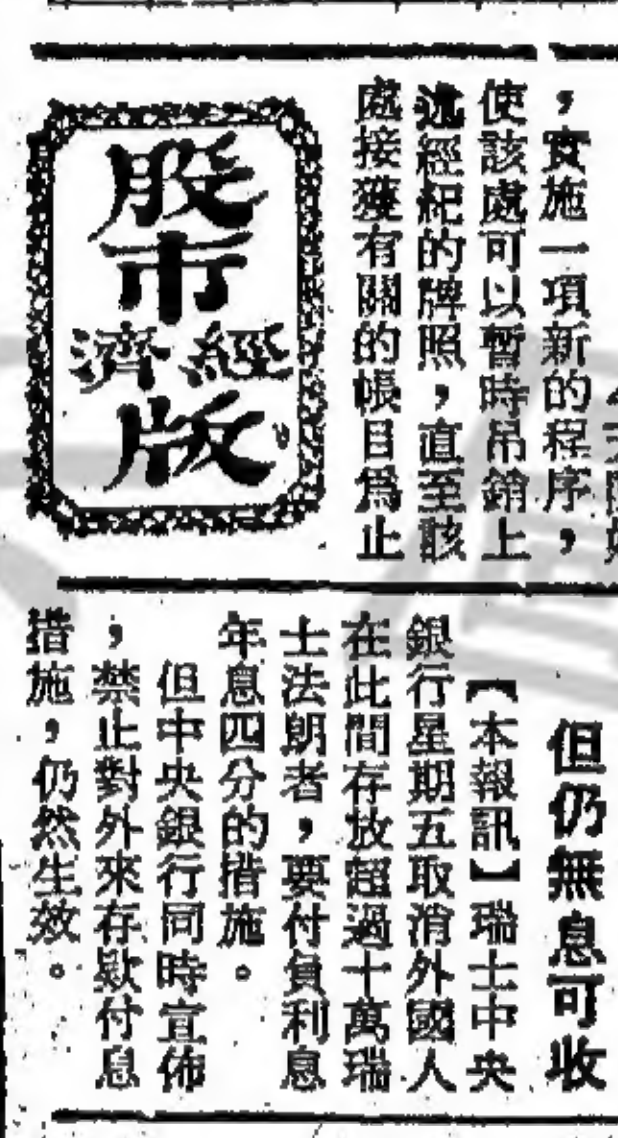 ，實施一項新的程序，
使該處可以暫時吊銷上
述經紀的牌照，直至該
處接獲有關的帳目爲止
股
市
經濟
版
但仍無息可收
【本報訊】瑞士中央
銀行星期五取消外國人
在此間存放超過十萬瑞
士法朗者，要付負利息
年息四分的措施。
但中央銀行同時宣佈
，禁止對外來存欵付息
措施，仍然生效。